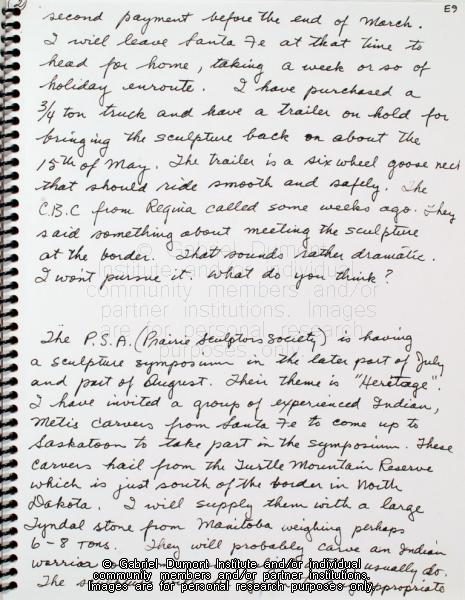 (2)
E9
second payment before the end of March.
I will leave Santa Fe at that time to
head for home, taking a week or so of
holiday enroute. I have purchased a
3/4 ton truck and have a trailer on hold for
bringing the sculpture back on about the
15th of May. The trailer is a six wheel goose neck
that should ride smooth and safely. The
C.B.C from Regina called some weeks ago. They
said something about meeting the sculpture
at the border. That sounds rather dramatic.
I won't pursue it. What do you think?
The P.S.A. (Prairie Sculptors Society) is having
a sculpture symposium in the later part of July
and part of August. Their theme is "Heretage".
I have invited a group of experienced Indian,
Metis carvers from Santa Fe to come up to
Saskatoon to take part in the symposium. These
carvers hail from the Turtle Mountain Reserve
which is just south of the border in North
Dakota. I will supply them with a large
Tyndal stone from Manitoba weighing perhaps
6-8 tons. They will probably carve an Indian
warrior usually do.
The appropriate
© Gabriel Dumont Institute and/or individual
community members and/or partner institutions.
Images are for personal research purposes only.